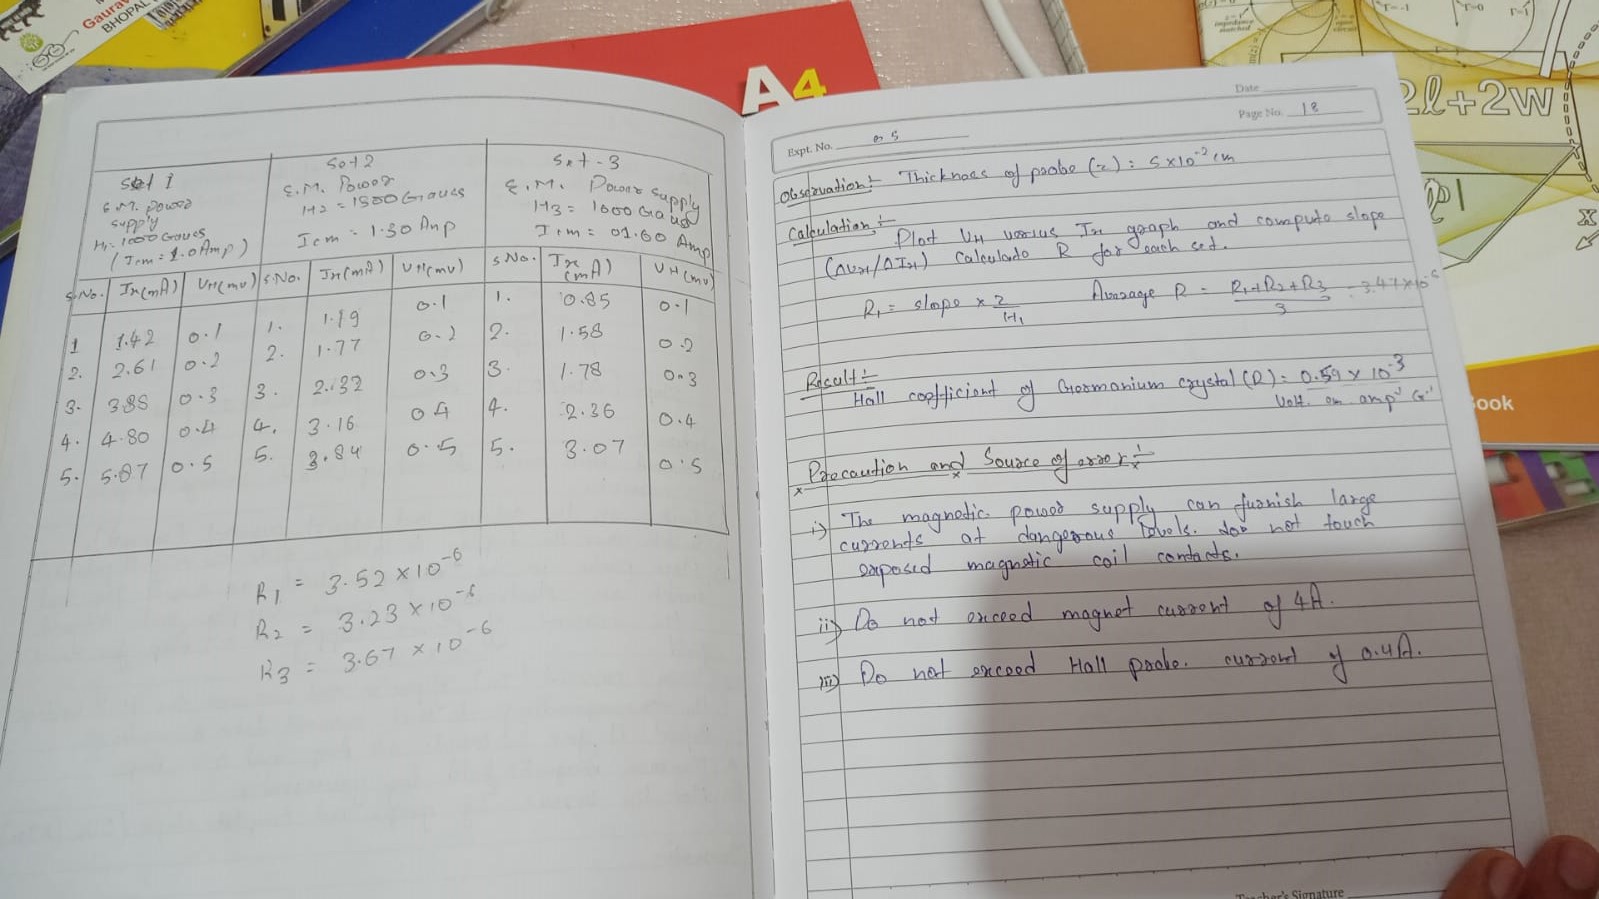 Gaurav
BHOPAL
A4
2l+2w
Book
Set 1
E.M. Power
supply
H1 = 1000 Gauss
(Icm = 1.0 Amp)
Set 2
E.M. Power
H2 = 1300 Gauss
Icm = 1.30 Amp
Set - 3
E.M. Power supply
H3 = 1600 Gauss
Icm = 01.60 Amp
S.No. Ix(mA) VH(mv) S.No. Ix(mA) VH(mv) S.No. Ix (mA) VH(mv)
1 1.42 0.1 1. 1.19 0.1 1. 0.85 0.1
2. 2.61 0.2 2. 1.77 0.2 2. 1.58 0.2
3. 3.85 0.3 3. 2.32 0.3 3. 1.78 0.3
4. 4.80 0.4 4. 3.16 0.4 4. 2.36 0.4
5. 5.87 0.5 5. 3.84 0.5 5. 3.07 0.5
R1 = 3.52 × 10-6
R2 = 3.23 × 10-6
R3 = 3.67 × 10-6
Date
Page No. 18
Expt. No. 05
Observation:- Thickness of probe (z) = 5×10-2 cm
Calculation:-
Plot VH versus Ix graph and compute slope
(ΔVH/ΔIx) Calculate R for each set.
R1 = slope × z/H1 Average R = R1+R2+R3/3 = 3.47×10-6
Result:-
Hall coefficient of Germanium crystal (R) = 0.59 × 10-3
Volt. cm amp-1 G-1
Precaution and Source of error:-
i) The magnetic power supply can furnish large
currents at dangerous levels. do not touch
exposed magnetic coil contacts.
ii) Do not exceed magnet current of 4A.
iii) Do not exceed Hall probe. current of 0.4A.
Teacher's Signature